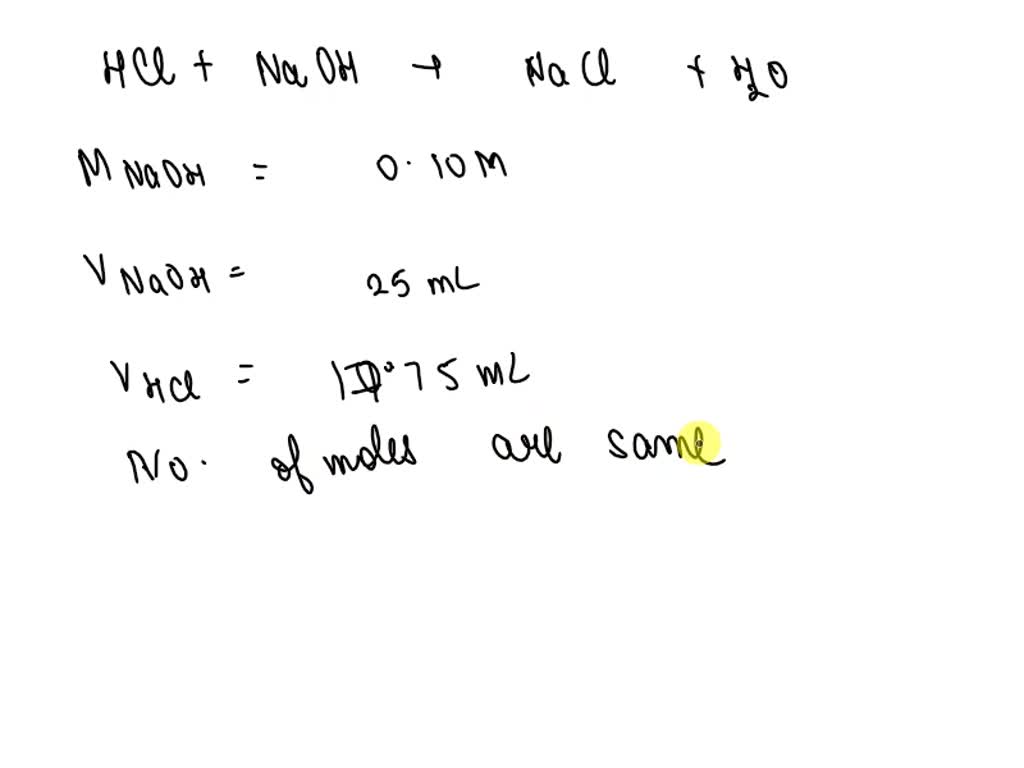 HCl + NaOH → NaCl + H2O
M NaOH = 0.10 M
V NaOH = 25 mL
V HCl = mL
No. of moles are same